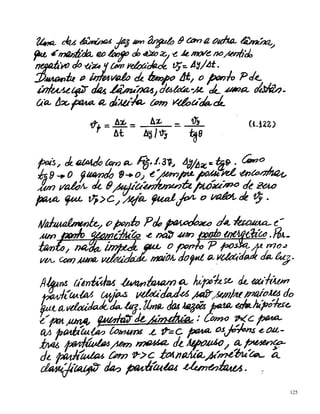 Uma das lâminas faz um ângulo θ com a outra lâmina,
que é mantida ao longo do eixo x, e se move no sentido
negativo do eixo y com velocidade v_y = Δy/Δt.
Durante o intervalo de tempo Δt, o ponto P de
interseção das lâminas, desloca-se de uma distân-
cia Δx para a direita com velocidade
v_P = Δx/Δt = Δx/(Δy/v_y) = v_y/tgθ (1.122)
pois, de acordo com a Fig. 1.37, Δy/Δx = tgθ. Como
tgθ → 0 quando θ → 0, é sempre possível encontrar
um valor de θ suficientemente próximo de zero
para que v_P > C, seja qual for o valor de v_y.
Naturalmente, o ponto P do paradoxo da tesoura é
um ponto geométrico e não um ponto energético. Por-
tanto, nada impede que o ponto P possa se mo-
ver com uma velocidade maior do que a velocidade da luz.
Alguns cientistas levantaram a hipótese de existirem
partículas cujas velocidades são sempre maiores do
que a velocidade da luz. Uma das razões para esta hipótese
é por uma questão de simetria: Como v<c para
as partículas comuns e v=c para os fótons e ou-
tras partículas sem massa de repouso, a presença
de partículas com v>c tornaria simétrica a
classificação das partículas elementares.
125